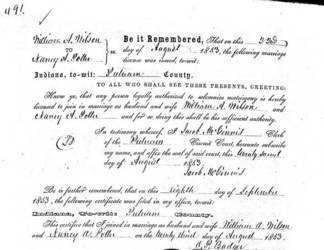 491.
William A. Wilson
TO
Nancy A. Potter
Be it Remembered, That on this 22d
day of August 1853, the following marriage
license was issued, to-wit:
Indiana, to-wit: Putnam County.
TO ALL WHO SHALL SEE THESE PRESENTS, GREETING:
Know ye, that any person legally authorized to solemnize matrimony is hereby
licensed to join in marriage as husband and wife William A. Wilson and
Nancy A. Potter and for so doing this shall be his sufficient authority.
In testimony whereof, I Jacob McGinnis Clerk
of the Putnam Circuit Court, hereunto subscribe
my name, and affix the seal of said court, this Twenty Second
day of August 1853.
Jacob McGinnis
Be it further remembered, that on this eighth day of September
1853, the following certificate was filed in my office, to-wit:
Indiana, To-wit: Putnam County.
This certifies that I joined in marriage as husband and wife William A. Wilson
and Nancy A. Potter on the twenty third day of August 1853.